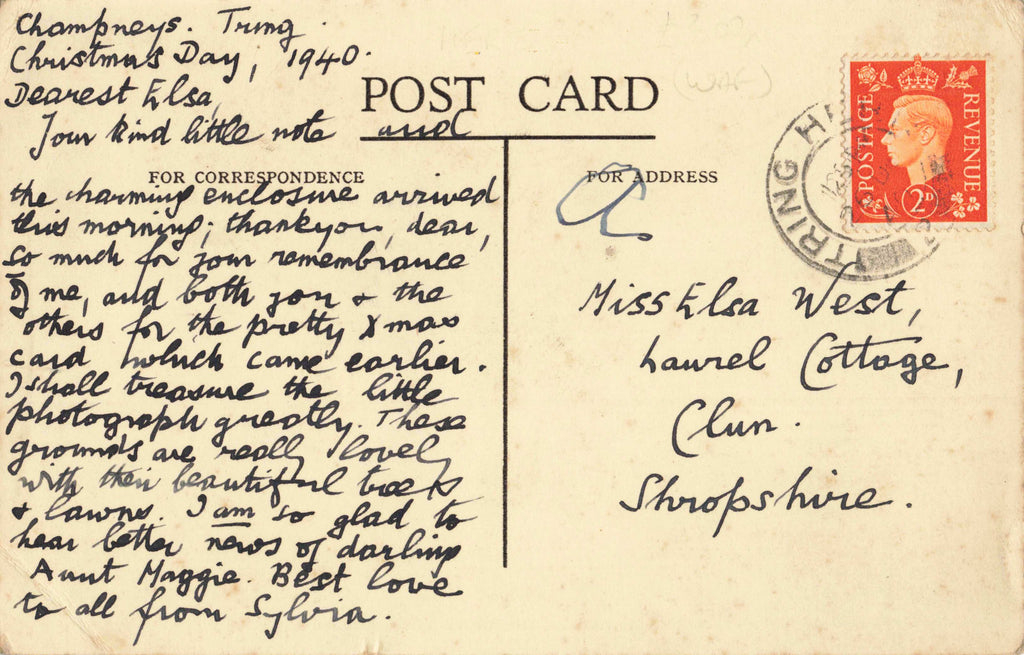 Champneys. Tring.
Christmas Day, 1940.
Dearest Elsa,
Your kind little note and
the charming enclosure arrived
this morning; thankyou, dear,
so much for your remembrance
of me, and both you & the
others for the pretty Xmas
card which came earlier.
I shall treasure the little
photograph greatly. These
grounds are really lovely
with their beautiful trees
& lawns. I am so glad to
hear better news of darling
Aunt Maggie. Best love
to all from Sylvia.
POST CARD
FOR CORRESPONDENCE
FOR ADDRESS
Miss Elsa West,
Laurel Cottage,
Clun.
Shropshire.
POSTAGE
REVENUE
2D
TRING